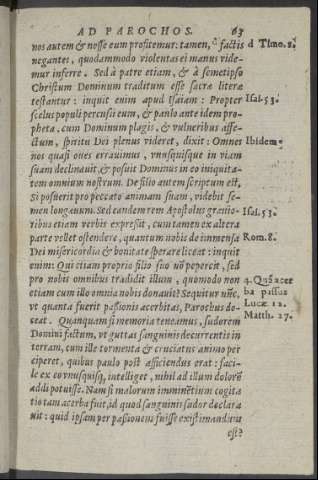 AD PAROCHOS. 63
nos autem & nosse eum profitemur: tamen, factis d Timo. 2.
negantes, quodammodo violentas ei manus vide-
mur inferre. Sed à patre etiam, & à semetipso
Christum Dominum traditum esse sacræ literæ
testantur: inquit enim apud Isaiam: Propter Isai. 53.
scelus populi percussi eum, & paulo ante idem pro-
pheta, cum Dominum plagis, & vulneribus affe-
ctum, spiritu Dei plenus videret, dixit: Omnes Ibidem.
nos quasi oues errauimus, vnusquisque in viam
suam declinauit, & posuit Dominus in eo iniquita-
tem omnium nostrum. De filio autem scriptum est,
Si posuerit pro peccato animam suam, videbit se-
men longæuum. Sed eandem rem Apostolus grauio- Isai. 53.
ribus etiam verbis expressit, cum tamen ex altera
parte vellet ostendere, quantum nobis de immensa Rom. 8.
Dei misericordia & bonitate sperare liceat: inquit
enim: Qui etiam proprio filio suo nō pepercit, sed
pro nobis omnibus tradidit illum, quomodo non 4. Quā acer
etiam cum illo omnia nobis donauit? Sequitur nūc, ba passio
vt quanta fuerit passionis acerbitas, Parochus do- Lucæ 22.
ceat. Quanquam si memoria teneamus, sudorem Matth. 27.
Domini factum, vt guttas sanguinis decurrentis in
terram, cum ille tormenta & cruciatus animo per
ciperet, quibus paulo post afficiendus erat: faci-
le ex eo vnusquisq, intelliget, nihil ad illum dolorē
addi potuisse. Nam si malorum imminētium cogita
tio tam acerba fuit, id quod sanguinis sudor declara
uit: quid ipsam perpassionem fuisse existimandum
est?